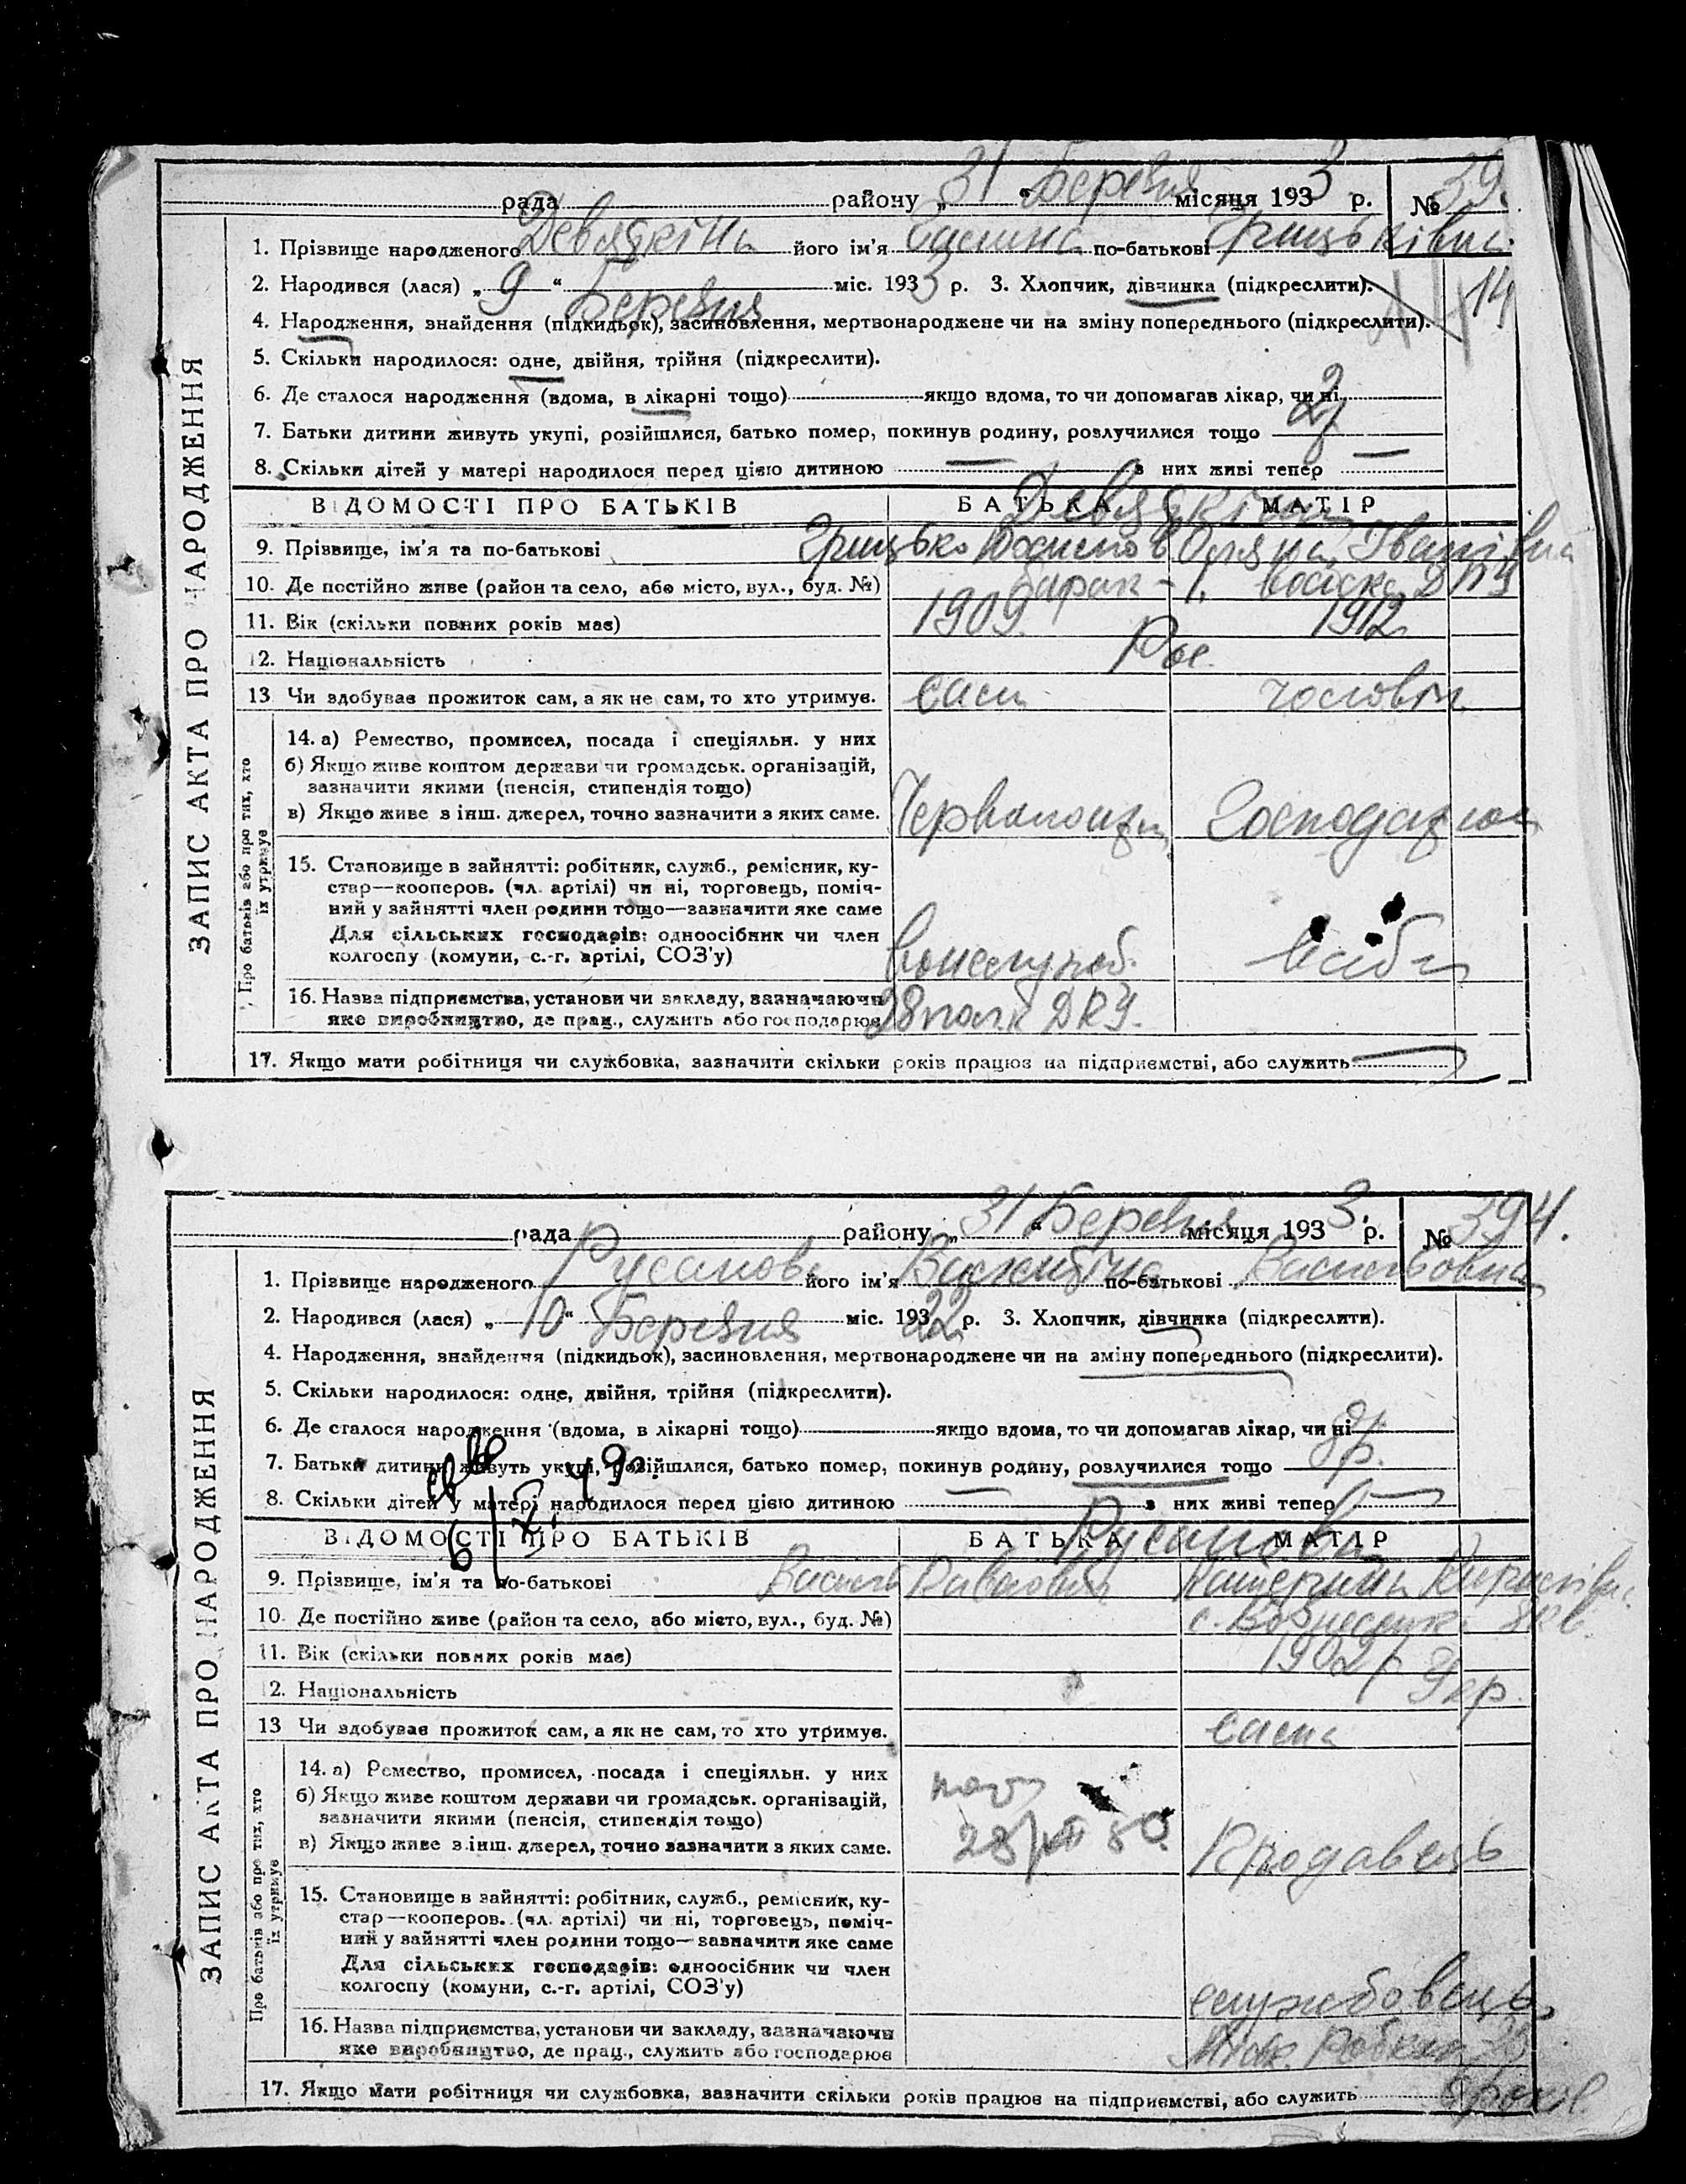 рада района „31“ Березня місяця 1933 р. №
1. Прізвище народженого Девяткіна його ім'я по-батькові Грицьківна
2. Народився (лася) „9“ Березня міс. 1933 р. 3. Хлопчик, дівчинка (підкреслити).
14
4. Народження, знайдення (підкидьок), засиновлення, мертвонароджене чи на зміну попереднього (підкреслити).
5. Скільки народилося: одне, двійня, трійня (підкреслити).
6. Де сталося народження (вдома, в лікарні тощо) якщо вдома, то чи допомагав лікар, чи ні
7. Батьки дитини живуть укупі, розійшлися, батько помер, покинув родину, розлучилися тощо
8. Скільки дітей у матері народилося перед цією дитиною — з них живі тепер —
ЗАПИС АКТА ПРО НАРОДЖЕННЯ
ВІДОМОСТІ ПРО БАТЬКІВ БАТЬКА МАТІР
9. Прізвище, ім'я та по-батькові Грицько Іванівна
10. Де постійно живе (район та село, або місто, вул., буд. №) барак
11. Вік (скільки повних років має) 1909 1912
12. Національність Рос.
13 Чи здобуває прожиток сам, а як не сам, то хто утримує. сам чоловік
Про батьків або про тих, хто їх утримує
14. а) Ремество, промисел, посада і спеціяльн. у них
б) Якщо живе коштом держави чи громадськ. організацій,
зазначити якими (пенсія, стипендія тощо)
в) Якщо живе з інш. джерел, точно зазначити з яких саме.
15. Становище в зайнятті: робітник, служб., ремісник, ку-
стар—кооперов. (чл. артілі) чи ні, торговець, поміч-
ний у зайнятті член родини тощо—зазначити яке саме
Для сільських господарів: одноосібник чи член
колгоспу (комуни, с.-г. артілі, СОЗ'у)
16. Назва підприємства, установи чи закладу, зазначаючи
яке виробництво, де прац., служить або господарює 28 полк
17. Якщо мати робітниця чи службовка, зазначити скільки років працює на підприємстві, або служить —
рада району „31“ Березня місяця 1933 р. № 394.
1. Прізвище народженого Русанова його ім'я Валентіна по-батькові Васильовна
2. Народився (лася) „10“ Березня міс. 1932 р. 3. Хлопчик, дівчинка (підкреслити).
4. Народження, знайдення (підкидьок), засиновлення, мертвонароджене чи на зміну попереднього (підкреслити).
5. Скільки народилося: одне, двійня, трійня (підкреслити).
6. Де сталося народження (вдома, в лікарні тощо) якщо вдома, то чи допомагав лікар, чи ні
7. Батьки дитини живуть укупі, розійшлися, батько помер, покинув родину, розлучилися тощо
8. Скільки дітей у матері народилося перед цією дитиною — з них живі тепер —
ЗАПИС АКТА ПРО НАРОДЖЕННЯ
Русанова
ВІДОМОСТІ ПРО БАТЬКІВ БАТЬКА МАТІР
9. Прізвище, ім'я та по-батькові Василь Катерина
10. Де постійно живе (район та село, або місто, вул., буд. №)
11. Вік (скільки повних років має) 1902
12. Національність Укр.
13 Чи здобуває прожиток сам, а як не сам, то хто утримує. сама
Про батьків або про тих, хто їх утримує
14. а) Ремество, промисел, посада і спеціяльн. у них
б) Якщо живе коштом держави чи громадськ. організацій,
зазначити якими (пенсія, стипендія тощо)
в) Якщо живе з інш. джерел, точно зазначити з яких саме. Продавець
15. Становище в зайнятті: робітник, служб., ремісник, ку-
стар—кооперов. (чл. артілі) чи ні, торговець, поміч-
ний у зайнятті член родини тощо—зазначити яке саме
Для сільських господарів: одноосібник чи член
колгоспу (комуни, с.-г. артілі, СОЗ'у) службовець
16. Назва підприємства, установи чи закладу, зазначаючи
яке виробництво, де прац., служить або господарює
17. Якщо мати робітниця чи службовка, зазначити скільки років працює на підприємстві, або служить